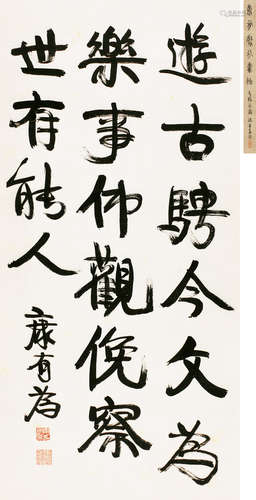 遊古騁今文為
樂事仰觀俛察
世有能人
康有為